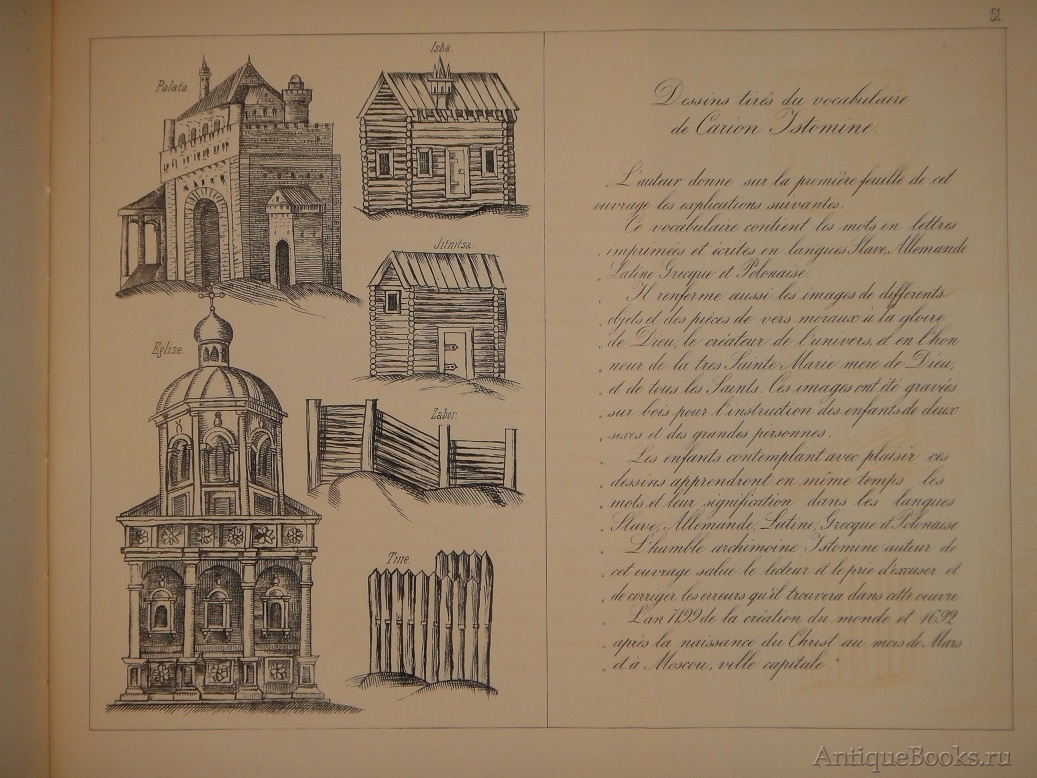 51.
Palata.
Isba.
Jitnitsa.
Eglise.
Zabor.
Tine.
Dessins tirés du vocabulaire
de Carion Istomine.
L'auteur donne sur la première feuille de cet
ouvrage les explications suivantes.
„ Ce vocabulaire contient les mots en lettres
„ imprimées et écrites en langues Slave, Allemande
„ Latine Grecque et Polonaise.
„ Il renferme aussi les images de differents
„ objets et des pièces de vers moraux à la gloire
„ de Dieu, le créateur de l'univers, et en l'hon-
„ neur de la tres Sainte Marie mere de Dieu,
„ et de tous les Saints. Ces images ont été gravées
„ sur bois pour l'instruction des enfants de deux
„ sexes et des grandes personnes.
„ Les enfants contemplant avec plaisir ces
„ dessins apprendront en même temps les
„ mots et leur signification dans les langues
„ Slave, Allemande, Latine, Grecque et Polonaise
„ L'humble archimoine Istomine auteur de
„ cet ouvrage salue le lecteur et le prie d'excuser et
„ de corriger les erreurs qu'il trouvera dans cette oeuvre
„ L'an 7199 de la création du monde et 1692
„ après la naissance du Christ au mois de Mars
„ et à Moscou, ville capitale."
AntiqueBooks.ru